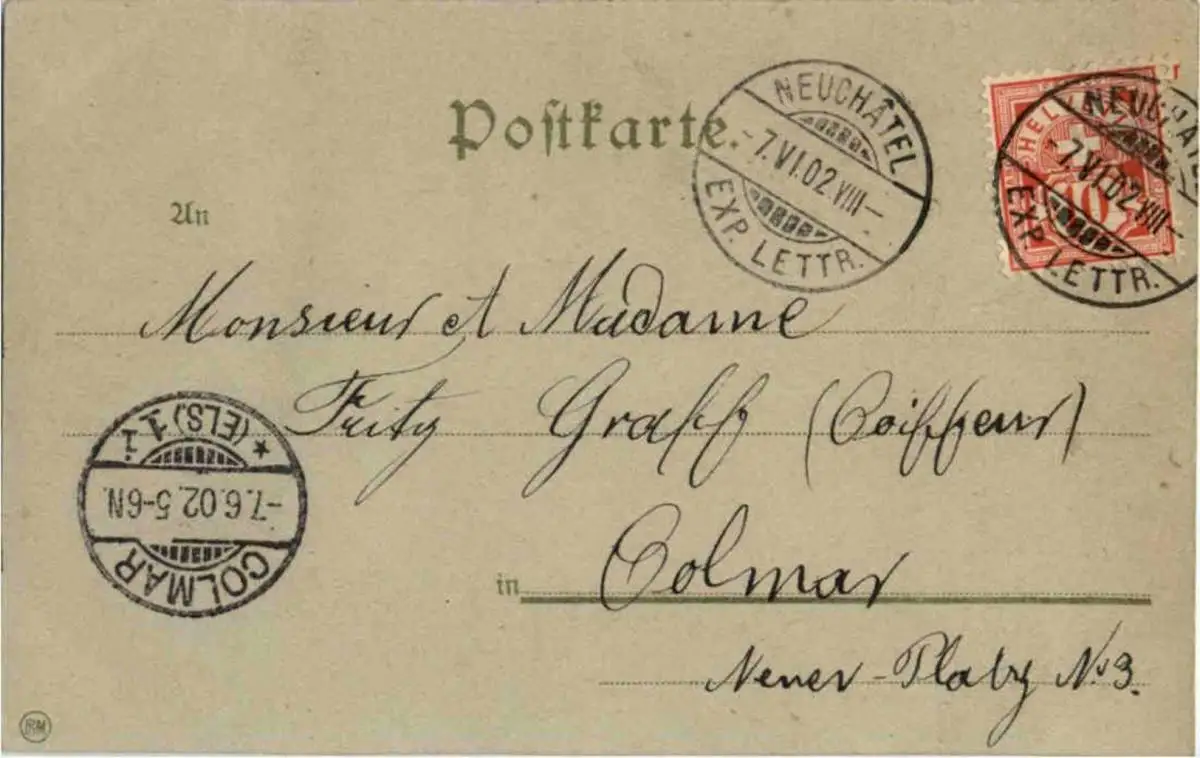 Postkarte.
NEUCHÂTEL
-7.VI.02.VIII-
EXP. LETTR.
HELVETIA
10
NEUCHÂTEL
7.VI.02.VIII-
EXP. LETTR.
An
Monsieur et Madame
Fritz Graff (Coiffeur)
* (ELS) 1 1
-7.6.02.5-6N.
COLMAR
in Colmar
Neuer-Platz No 3.
RM